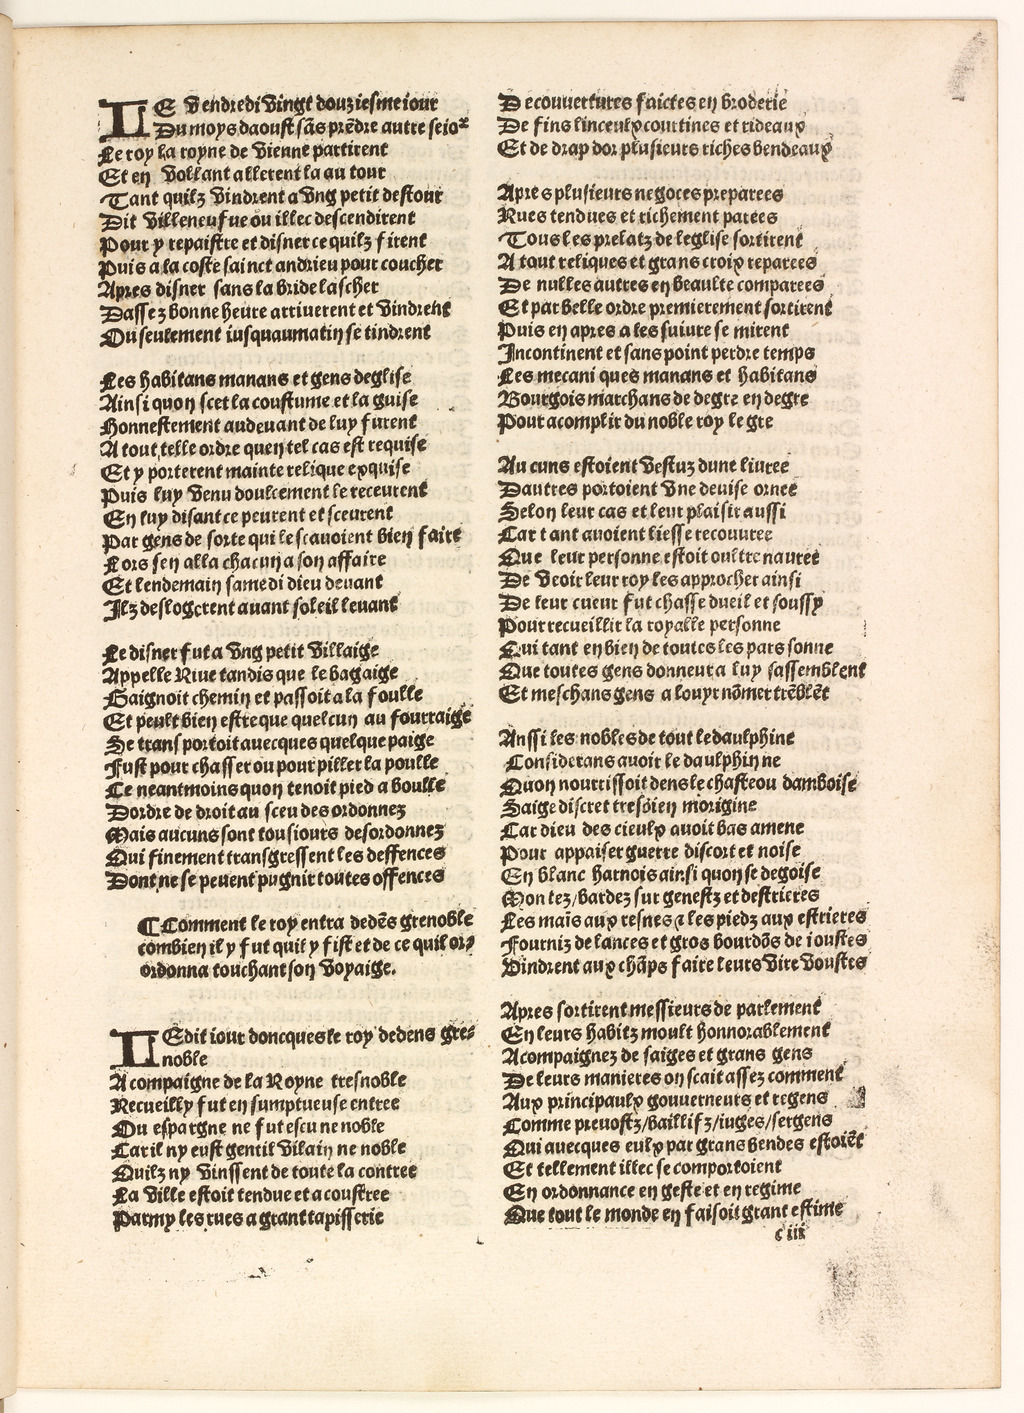 LE Vendredi Vingt douziesme iour
Du moys daoust sãs prẽdre autre seioꝛ
Le roy la royne de Vienne partirent
Et en Vollant allerent la au tour
Tant quilz Vindrent a Vng petit destour
Dit Villeneufue ou illec descendirent
Pour y repaistre et disner ce quilz firent
Puis a la coste sainct andrieu pour coucher
Apres disner sans la bride lascher
Dassez bonne heure arriuerent et Vindrent
Ou seulement iusquau matin se tindrent
Les habitans manans et gens deglise
Ainsi quon scet la coustume et la guise
Honnestement audeuant de luy furent
A tout telle ordre quen tel cas est requise
Et y porterent mainte relique exquise
Puis luy Venu doulcement le receurent
En luy disant ce peurent et sceurent
Par gens de sorte qui le scauoient bien faire
Lors sen alla chacun a son affaire
Et lendemain samedi dieu deuant
Ilz deslogerent auant soleil leuant
Le disner fut a Vng petit Villaige
Appelle Riue tandis que le bagaige
Gaignoit chemin et passoit a la foulle
Et peult bien estre que quelcun au fourraige
Se transportoit auecques quelque paige
Fust pour chasser ou pour piller la poulle
Ce neantmoins quon tenoit pied a boulle
Dordre de droit au sceu des ordonnez
Mais aucuns sont tousiours desordonnez
Qui finement transgressent les deffences
Dont ne se peuent pugnir toutes offences
¶ Comment le roy entra dedẽs grenoble
combien il y fut quil y fist et de ce quil or⸗
ordonna touchant son Voyaige.
LEdit iour doncques le roy dedens gre⸗
noble
Acompaigne de la Royne tresnoble
Recueilly fut en sumptueuse entree
Ou espargne ne fut escu ne noble
Car il ny eust gentil Vilain ne noble
Quilz ny Vinssent de toute la contree
La Ville estoit tendue et acoustree
Parmy les rues a grant tapisserie
De couuertures faictes en broderie
De fins linceulx courtines et rideaux
Et de drap dor plusieurs riches bendeaux
Apres plusieurs negoces preparees
Rues tendues et richement parees
Tous les prelatz de leglise sortirent
A tout reliques et grans croix reparees
De nulles autres en beaulte comparees
Et par belle ordre premierement sortirent
Puis en apres a les suiure se mirent
Incontinent et sans point perdre temps
Les mecaniques manans et habitans
Bourgois marchans de degre en degre
Pour acomplir du noble roy le gre
Aucuns estoient Vestuz dune liuree
Dautres portoient Vne deuise ornee
Selon leur cas et leur plaisir aussi
Car tant auoient liesse recouuree
Que leur personne estoit oultre nauree
De Veoir leur roy les approcher ainsi
De leur cueur fut chasse dueil et soussy
Pour recueillir la royalle personne
Qui tant en bien de toutes les pars sonne
Que toutes gens donneur a luy sassemblent
Et meschans gens a louyr nõmer trẽblẽt
Anssi les nobles de tout le daulphine
Considerans auoir le daulphin ne
Quon nourrissoit dens le chasteou damboise
Saige discret tresbien morigine
Car dieu des cieulx auoit bas amene
Pour appaiser guerre discort et noise
En blanc harnois ainsi quon se degoise
Montez/bardez sur genestz et destrieres
Les mais aux resnes & les piedz aux estrieres
Fourniz de lances et gros bourdõs de ioustes
Vindrent aux chãps faire leurs Vire Voustes
Apres sortirent messieurs de parlement
En leurs habitz moult honnorablement
Acompaignez de saiges et grans gens
De leurs manieres on scait assez comment
Aux principaulx gouuerneurs et regens
Comme preuostz/baillifz/iuges/sergens
Qui auecques eulx par grans bendes estoiẽt
Et tellement illec se comportoient
En ordonnance en geste et en regime
Que tout le monde en faisoit grant estime
c iii